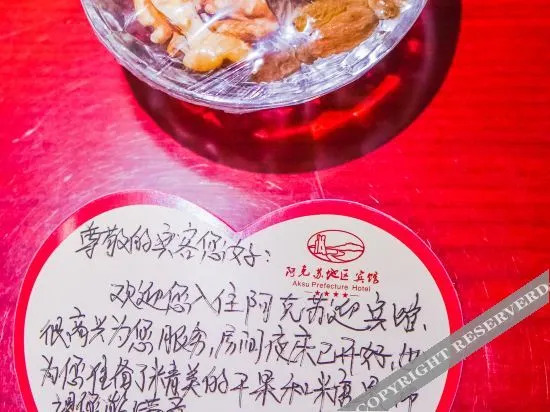 尊敬的宾客您好：
阿克苏地区宾馆
Aksu Prefecture Hotel
★★★★
欢迎您入住阿克苏迎宾馆、
很高兴为您服务，房间夜床已开好，也
为您准备了精美的干果和
COPYRIGHT RESERVED